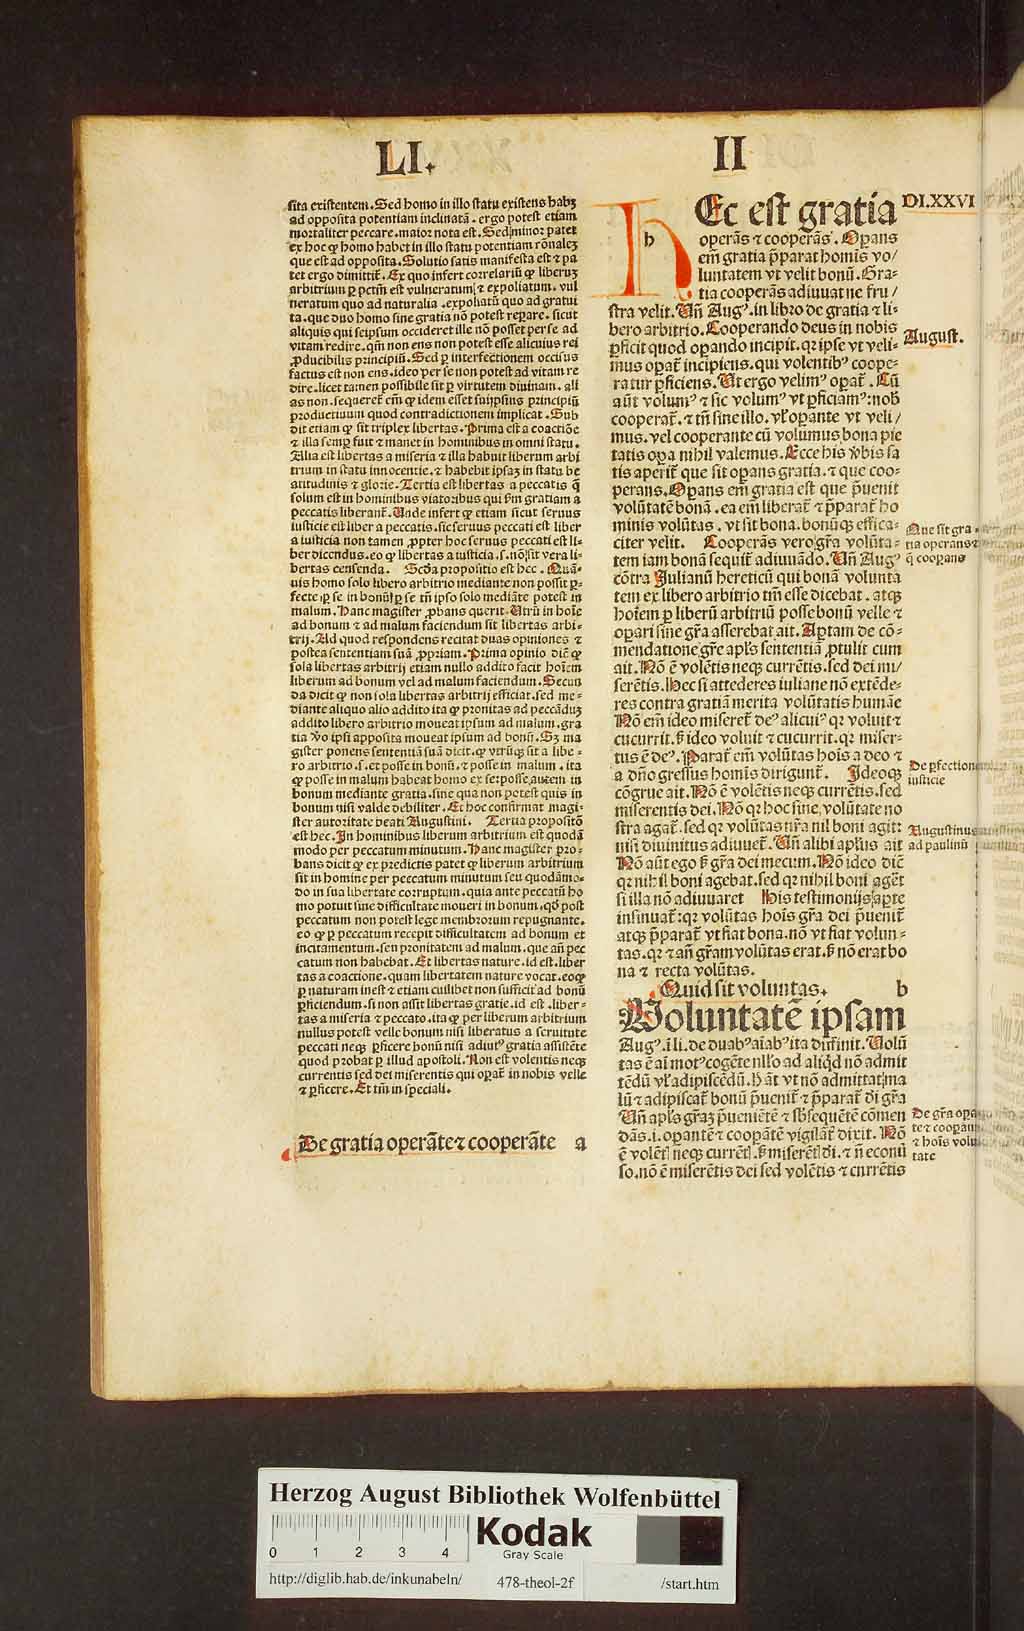 LI.
II
sita existentem. Sed homo in illo statu existens habꝫ
ad opposita potentiam inclinatā. ergo potest etiam
mortaliter peccare. maior nota est. Sed minor patet
ex hoc ꝙ homo habet in illo statu potentiam rōnalem
que est ad opposita. Solutio satis manifesta est ⁊ pa
tet ergo dimittit̄. Ex quo infert correlariū ꝙ liberuꝫ
arbitrium ꝑ pctm̄ est vulneratum ⁊ expoliatum. vul
neratum quo ad naturalia. expoliatū quo ad gratui
ta. que duo homo sine gratia nō potest reꝑare. sicut
aliquis qui seipsum occideret ille nō posset per se ad
vitam redire. qm̄ non ens non potest esse alicuius rei
ꝓducibilis principiū. Sed ꝑ interfectionem occisus
factus est non ens. ideo per se non potest ad vitam re
dire. licet tamen possibile sit ꝑ virtutem diuinam. ali
as non. sequeret̄ em̄ ꝙ idem esset suiipsius principiū
productiuum quod contradictionem implicat. Sub
dit etiam ꝙ sit triplex libertas. Prima est a coactiōe
⁊ illa semꝑ fuit ⁊ manet in hominibus in omni statu.
Alia est libertas a miseria ⁊ illa habuit liberum arbi
trium in statu innocentie. ⁊ habebit ipsaꝫ in statu be
atitudinis ⁊ glorie. Tertia est libertas a peccatis q̄
solum est in hominibus viatoribus qui ẜm gratiam a
peccatis liberant̄. Unde infert ꝙ etiam sicut seruus
iusticie est liber a peccatis. sic seruus peccati est liber
a iusticia non tamen ꝓpter hoc seruus peccati est li-
ber dicendus. eo ꝙ libertas a iusticia. s. nō sit vera li-
bertas censenda. Scďa propositio est hec. Quā-
uis homo solo libero arbitrio mediante non possit ꝑ-
fecte ꝑ se in bonū ꝑ se tn̄ ipso solo mediāte potest in
malum. Hanc magister ꝓbans querit. Utrū in hoīe
ad bonum ⁊ ad malum faciendum sit libertas arbi-
trij. Ad quod respondens recitat duas opiniones ⁊
postea sententiam suā ꝓpriam. Prima opinio dic̄ ꝙ
sola libertas arbitrij etiam nullo addito facit hoīem
liberum ad bonum vel ad malum faciendum. Secun
da dicit ꝙ non sola libertas arbitrij efficiat. sed me-
diante aliquo alio addito ita ꝙ pronitas ad peccāduꝫ
addito libero arbitrio moueat ipsum ad malum. gra
tia ꝟo ipsi apposita moueat ipsum ad bonū. Sꝫ ma
gister ponens sententiā suā dicit. ꝙ vtrūqꝫ sit a libe-
ro arbitrio. s. et posse in bonū. ⁊ posse in malum. ita
ꝙ posse in malum habeat homo ex se: posse autem in
bonum mediante gratia. sine qua non potest quis in
bonum nisi valde debiliter. Et hoc confirmat magi-
ster autoritate beati Augustini. Tertia propositō
est hec. In hominibus liberum arbitrium est quodā
modo per peccatum minutum. Hanc magister pro-
bans dicit ꝙ ex predictis patet ꝙ liberum arbitrium
sit in homine per peccatum minutum seu quodāmo-
do in sua libertate corruptum. quia ante peccatū ho
mo potuit sine difficultate moueri in bonum. qď post
peccatum non potest lege membrorum repugnante.
eo ꝙ ꝑ peccatum recepit difficultatem ad bonum et
incitamentum. seu pronitatem ad malum. que añ pec
catum non habebat. Et libertas nature. id est. liber
tas a coactione. quam libertatem nature vocat. eoqꝫ
ꝑ naturam inest ⁊ etiam cuilibet non sufficit ad bonū
ꝑficiendum. si non assit libertas gratie. id est. liber-
tas a miseria ⁊ peccato. ita ꝙ per liberum arbitrium
nullus potest velle bonum nisi liberatus a seruitute
peccati neqꝫ ꝑficere bonū nisi adiutꝰ gratia assistēte
quod probat ꝑ illud apostoli. Non est volentis neqꝫ
currentis sed dei miserentis qui oꝑat̄ in nobis velle
⁊ ꝑficere. Et tm̄ in speciali.
De gratia operāte ⁊ cooperāte a
h
Ec est gratia
operās ⁊ cooperās. Oꝑans
em̄ gratia p̄parat homīs vo/
luntatem vt velit bonū. Gra-
tia cooperās adiuuat ne fru/
stra velit. Uñ Augꝰ. in libro de gratia ⁊ li-
bero arbitrio. Cooperando deus in nobis
ꝑficit quod oꝑando incipit. qꝛ ipse vt veli-
mus oꝑat̄ incipiens. qui volentibꝰ coope-
ratur ꝑficiens. Ut ergo velimꝰ oꝑat̄. Cū
aūt volumꝰ ⁊ sic volumꝰ vt ꝑficiamꝰ: nob̄
cooperat̄. ⁊ tn̄ sine illo. vl' oꝑante vt veli/
mus. vel cooperante cū volumus bona pie
tatis oꝑa nihil valemus. Ecce his ꝟbis sa
tis aperit̄ que sit oꝑans gratia. ⁊ que coo-
perans. Oꝑans em̄ gratia est que p̄uenit
volūtatē bonā. ea em̄ liberat̄ ⁊ p̄parat̄ ho
minis volūtas. vt sit bona. bonūqꝫ effica-
citer velit. Cooperās vero gr̄a volūta-
tem iam bonā sequit̄ adiuuādo. Uñ Augꝰ
cōtra Julianū hereticū qui bonā volunta
tem ex libero arbitrio tm̄ esse dicebat. atqꝫ
hoīem ꝑ liberū arbitriū posse bonū velle ⁊
oꝑari sine gr̄a asserebat ait. Aꝑtam de cō-
mendatione gr̄e apl's sententiā ꝓtulit cum
ait. Nō ē volētis neqꝫ currētis. sed dei mi/
serētis. Hec si attederes iuliane nō extēde-
res contra gratiā merita volūtatis humāe
Nō em̄ ideo miseret̄ deꝰ alicuiꝰ qꝛ voluit ⁊
cucurrit. ẜ ideo voluit ⁊ cucurrit. qꝛ miser-
tus ē deꝰ. Parat̄ em̄ volūtas hoīs a deo ⁊
a dn̄o gressus homīs dirigunt̄. Ideoqꝫ
cōgrue ait. Nō ē volētis neqꝫ currētis. sed
miserentis dei. Nō qꝛ hoc sine volūtate no
stra agat̄. sed qꝛ volūtas nr̄a nil boni agit:
nisi diuinitus adiuuet̄. Uñ alibi apl'us ait
Nō aūt ego ẜ gr̄a dei mecum. Nō ideo dic̄
qꝛ nihil boni agebat. sed qꝛ nihil boni aget
si illa nō adiuuaret His testimonijs aꝑte
insinuat̄: qꝛ volūtas hoīs gr̄a dei p̄uenit̄
atqꝫ p̄parat̄ vt fiat bona. nō vt fiat volun-
tas. qꝛ ⁊ añ gr̄am volūtas erat. ẜ nō erat bo
na ⁊ recta volūtas.
Quid sit voluntas. b
Voluntatē ipsam
Augꝰ. ī li. de duabꝰ aīabꝰ ita diffinit. Volū
tas ē aī motꝰ cogēte nllo ad aliqď nō admit
tēdū vl' adipiscēdū. H āt vt nō admittat ma
lū ⁊ adipiscat̄ bonū p̄uenit̄ ⁊ p̄parat̄ di gr̄a
Uñ apl's gr̄aꝫ p̄ueniētē ⁊ sb̄sequētē cōmen
dās. i. oꝑantē ⁊ cooꝑātē vigilāt̄ dixit. Nō
ē volēt̄ neqꝫ currēt̄. ẜ miserēt̄ di. ⁊ ñ econu
so. nō ē miserētis dei sed volētis ⁊ currētis
b
DI.XXVI
August.
Que sit gra-
tia operans ⁊
q̄ cooꝑans
De ꝑfectione
iusticie
Augustinus
ad paulinū
De gr̄a oꝑa
te ⁊ cooꝑan
⁊ hoīs volū
tate
Herzog August Bibliothek Wolfenbüttel
0 1 2 3 4
Kodak
Gray Scale
http://diglib.hab.de/inkunabeln/
478-theol-2f
/start.htm